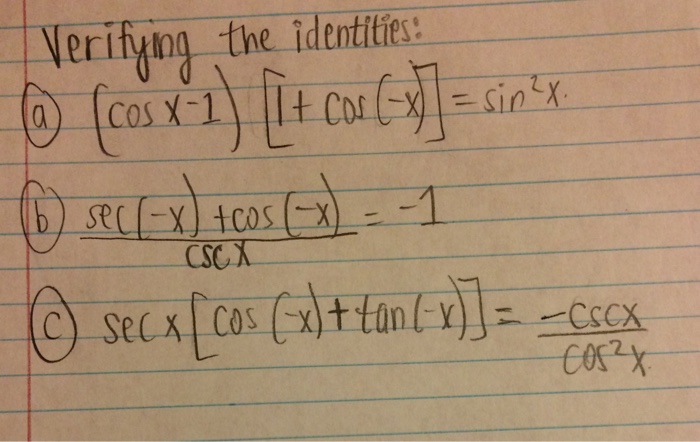 Verifying the identities:
(a) (cos x-1) [1+ cos (-x)] = sin²x.
(b) sec(-x) +cos (-x) = -1
csc x
(c) sec x [cos (-x)+tan(-x)] = -cscx
cos²x.